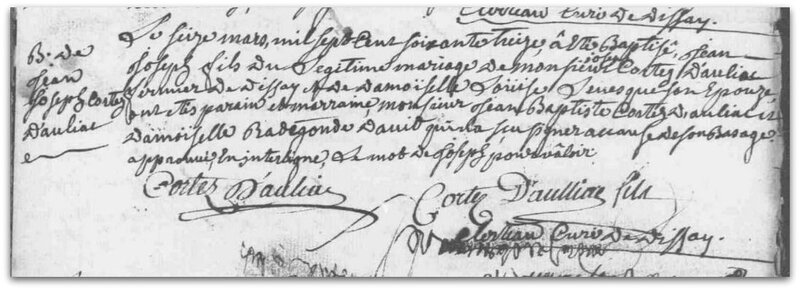 Curé De Dissay.
B. de
Jean
Joseph Cortes
D'auliac
Le seize mars, mil sept cent soixante treize a Eté Baptisé, Jean
Joseph fils du Legitime mariage de monsieur Cortes D'auliac
joseph
fermier de Dissay et de Damoiselle Loüise Levesque son Epouze
ont etés parain et marraine, monsieur Jean Baptiste Cortes D'auliac et
Damoiselle Radegonde David qui n'a scu signer a cause de son Basage
approuvé En interligne Le mot de joseph pour valoir.
Cortes D'auliac
Cortes D'aulliac fils
Curé De Dissay.